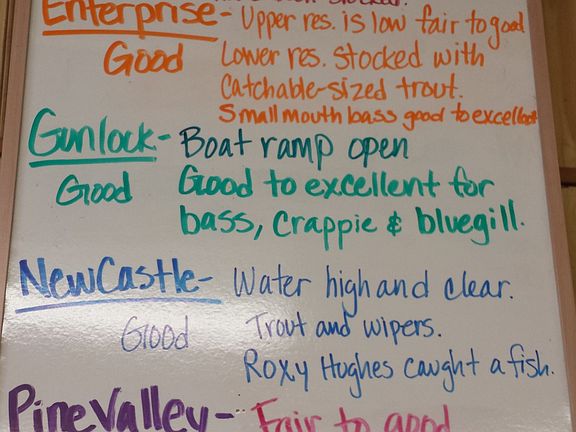 Enterprise- Upper res. is low fair to good
Good Lower res. stocked with
Catchable-sized trout.
Smallmouth bass good to excellent
Gunlock- Boat ramp open
Good Good to excellent for
bass, Crappie & bluegill.
NewCastle- Water high and clear.
Good Trout and wipers.
Roxy Hughes caught a fish.
Pine Valley- Fair to good